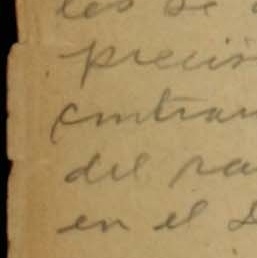 les de
precis
contrar
del pa
en el